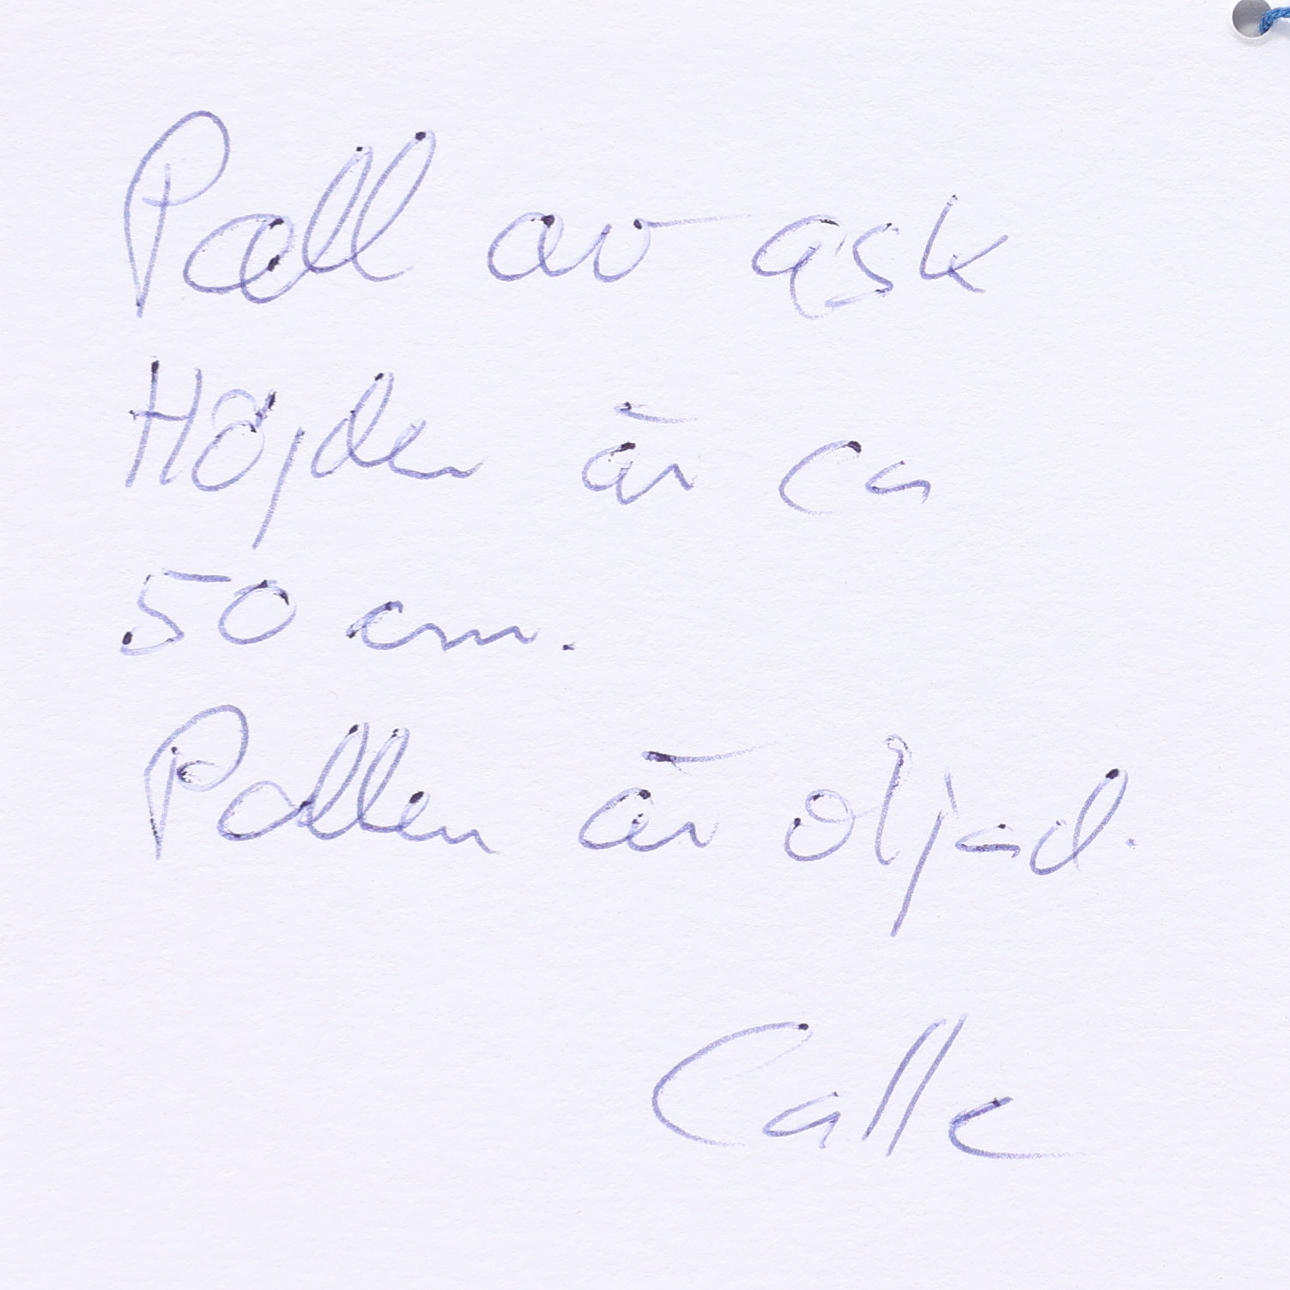 Pall av ask
Höjden är ca
50 cm.
Pallen är oljad.
Calle